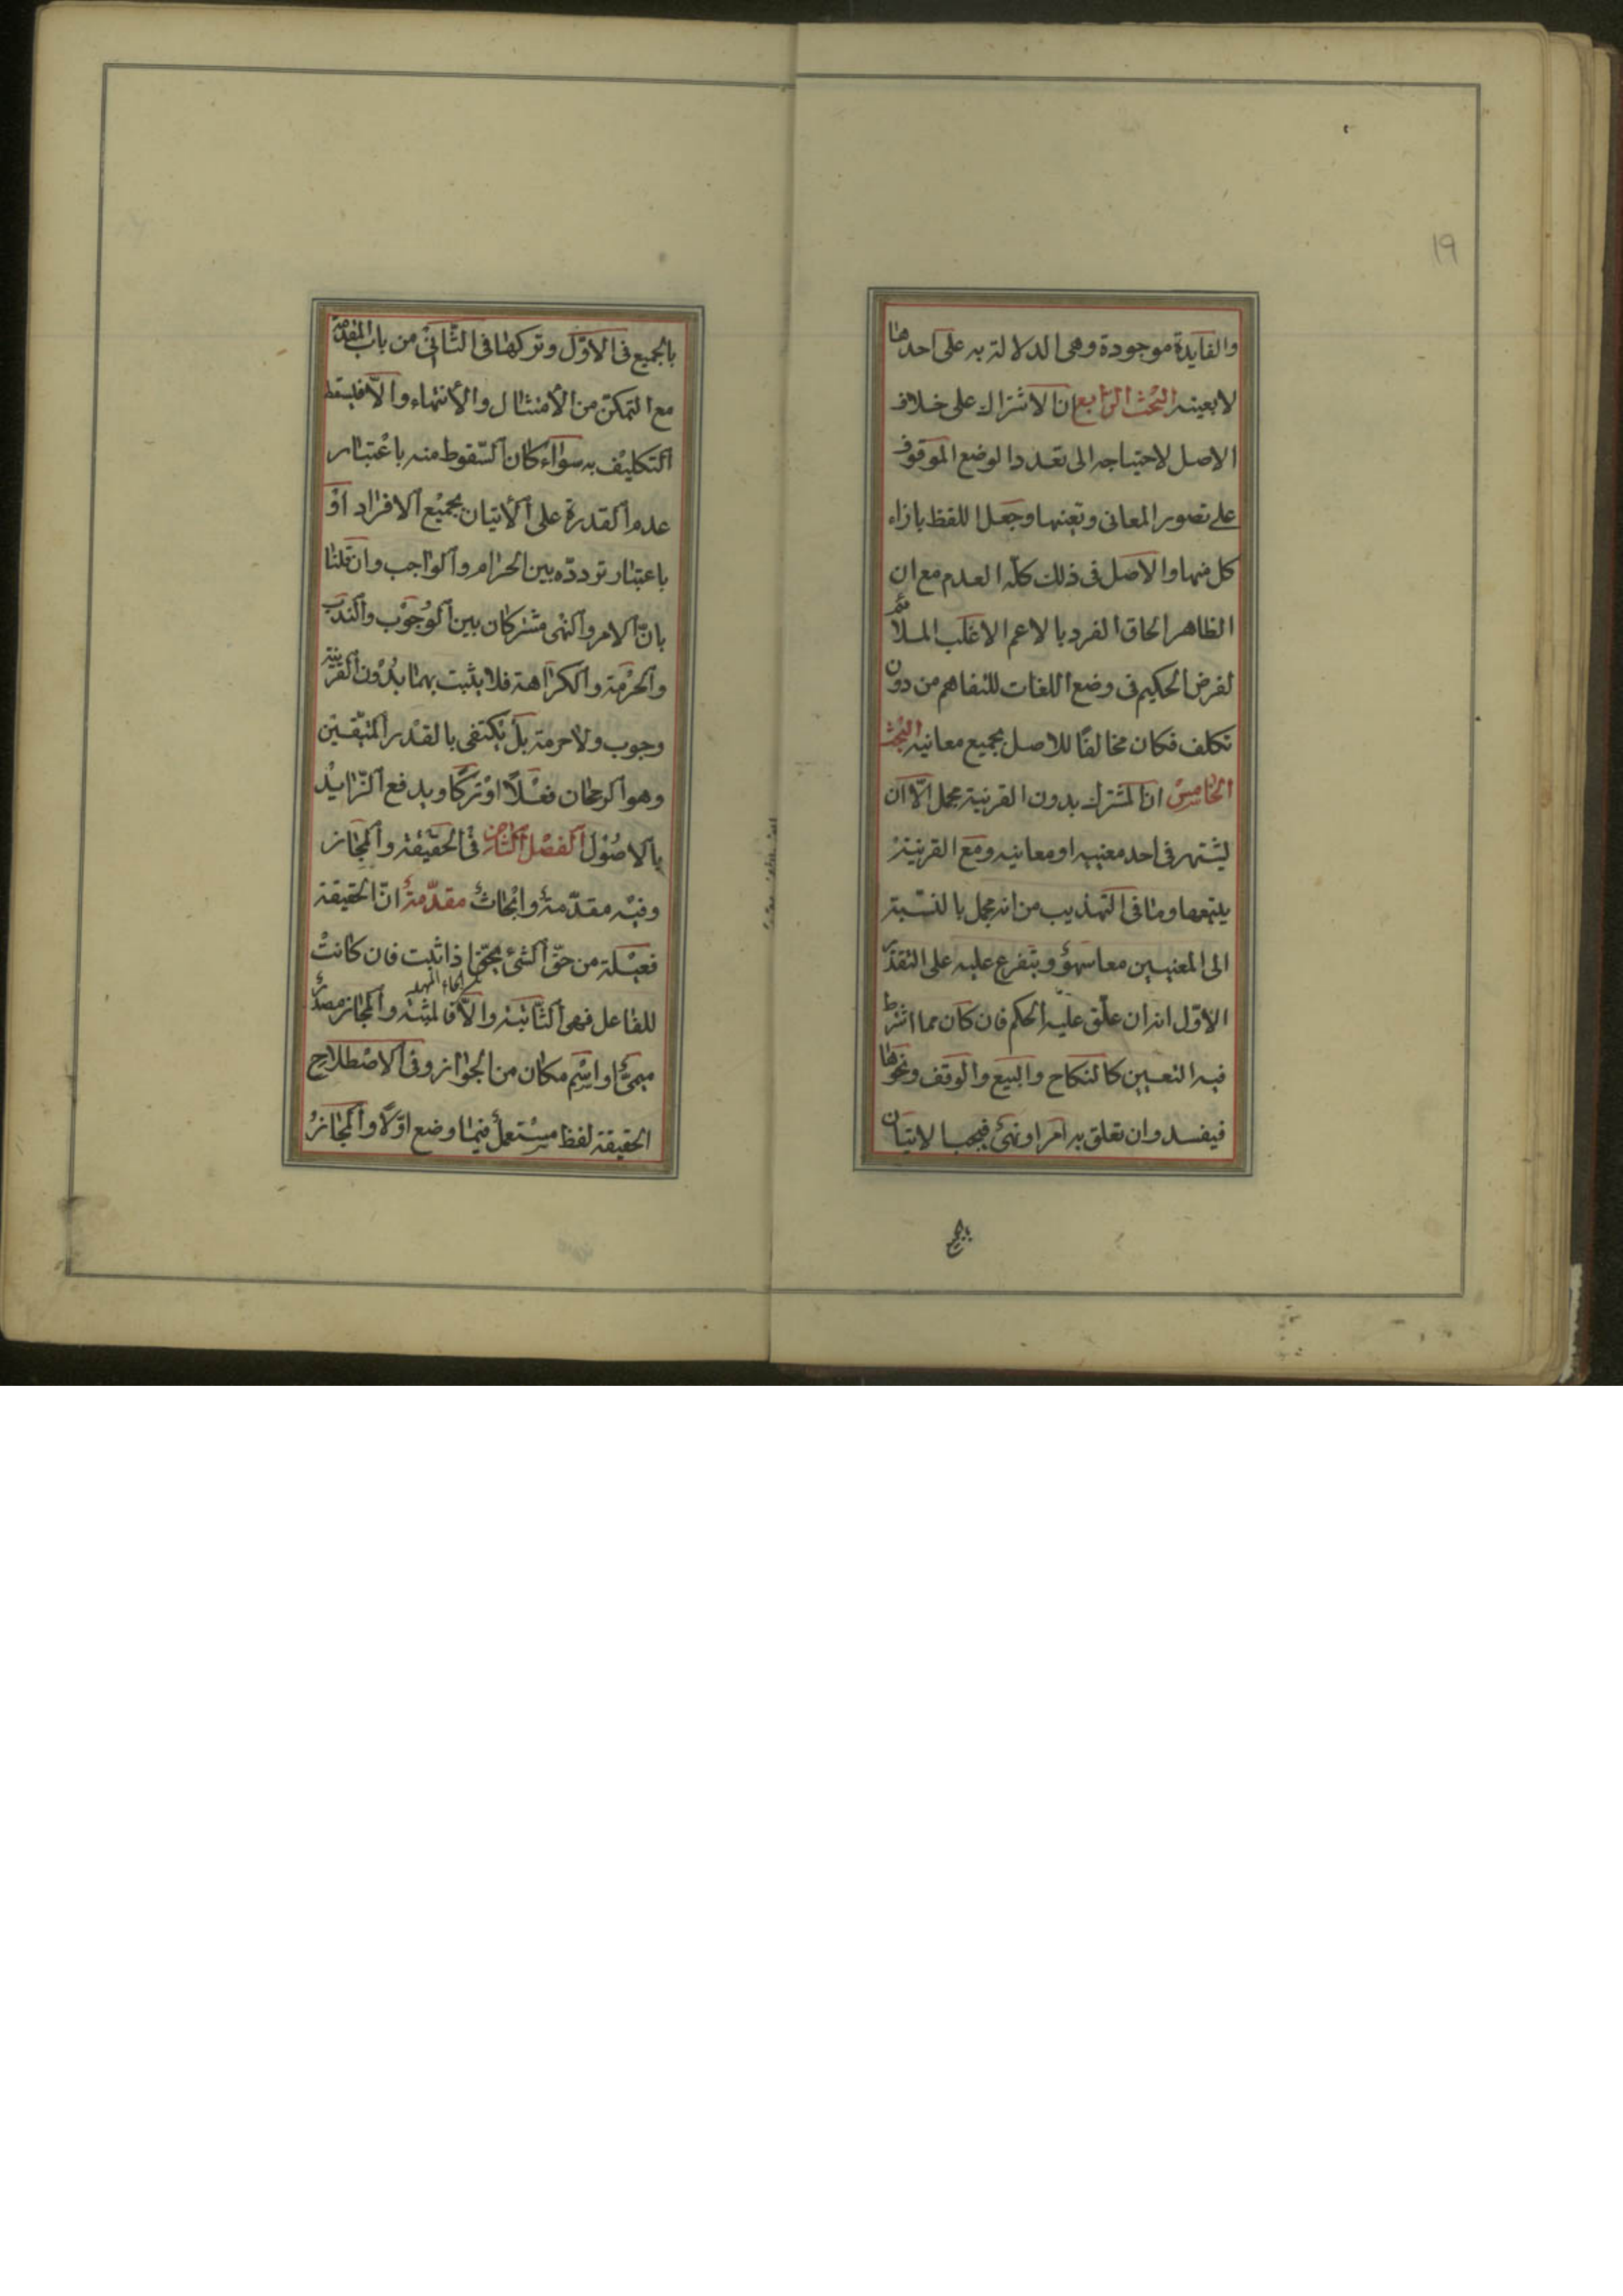 ١٩
والفايدة موجودة وهى الدلالة به على احدها
لا بعينه البحث الرابع ان الاشتراك على خلاف
الاصل لاحتياجه الى تعدد الوضع الموقوف
على تصور المعانى وتعينها وجعل اللفظ بازاء
كل منها والاصل فى ذلك كله العدم مع ان
الظاهر الحاق الفرد بالاعم الاغلب الملائم
لغرض الحكيم فى وضع اللغات للتفاهم من دون
تكلف فكان مخالفًا للاصل بجميع معانيه البحث
الخامس ان المشترك بدون القرينة مجمل الّا ان
يشتهر فى احد معنييه او معانيه ومع القرينة
يتبعها وما فى التهذيب من انه مجمل بالنسبة
الى المعنيين معا سهوٌ ويتفرع عليه على التقدير
الاوّل انه ان علّق عليه الحكم فان كان مما اشترط
فيه التعيين كالنكاح والبيع والوقف ونحوها
فيفسد وان تعلق به امر او نهىٌ فيجب الاتيان
بالجميع
بالجميع فى الاوّل وتركها فى الثّانىْ من باب المقدمة
مع التمكن من الأمتثال والأنتهاء والّا فليسقط
التكليف به سواء كان السّقوط منه باعْتبار
عدم القدرة على الأتيان بجميْع الافراد اوْ
باعتبار تردّده بين الحرام والواجب وان قلنا
بانّ الامر والنهى مشتركان بين الوُجوْب والندب
والحرْمة والكراهة فلا يثبت بهما بدُوْن القرينة
وجوب ولا حرمة بلْ يكتفى بالقدْر المتيقّين
وهو الرجحان فعْلًا اوْ تركًا ويدفع الزّايدْ
بالاصُوْل الفصْل الثامن فى الحقيْقة والمجاز
وفيْه مقدّمةٌ وابْحاثٌ مقدّمةٌ انّ الحقيقة
فعيْلة من حقّ الشئ يحقّ اذا ثبت فان كانتْ
بالحاء المهملة
للفاعل فهى الثّابتة والّا فالمثبتة والمجاز مصدرٌ
ميمىٌّ او اسْم مكان من الجواز وفى الاصْطلاح
الحقيقة لفظ مسْتعملٌ فيما وضع اوّلًا والمجازُ